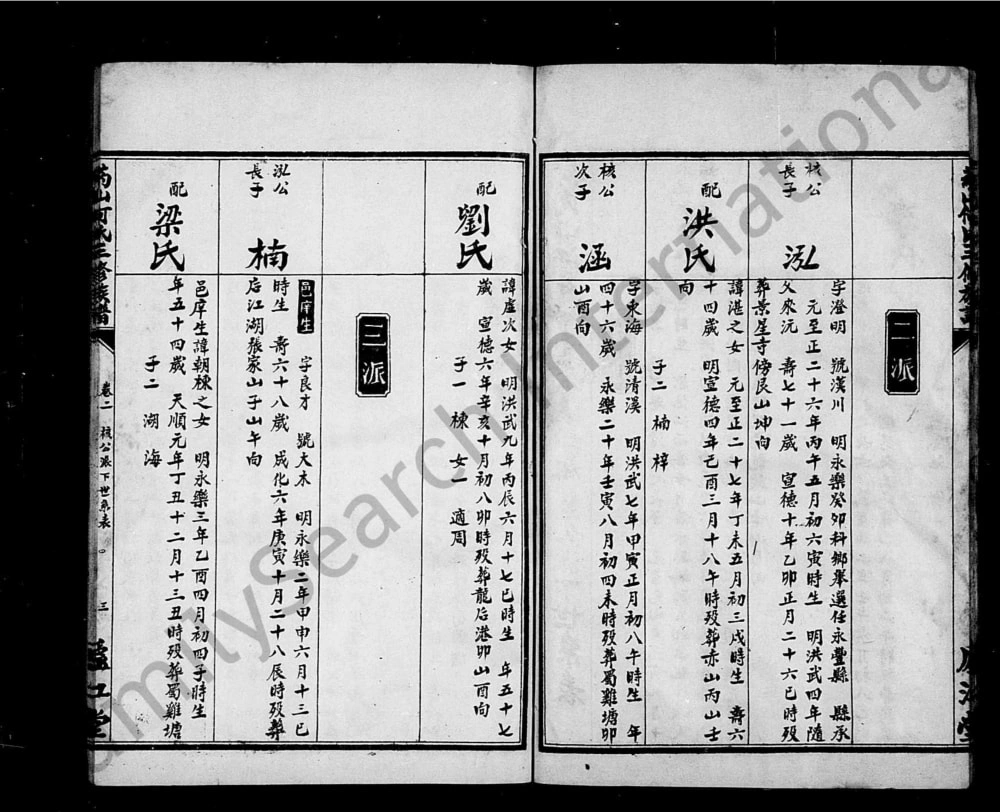 二派
核公
長子
泓
字澄明 號漢川 明永樂癸卯科鄉舉選任永豐縣 縣丞
元至正二十六年丙午五月初六寅時生 明洪武四年隨
父來沅 壽七十一歲 宣德十年乙卯正月二十六巳時歿
葬景星寺傍艮山坤向
配
洪氏
諱湛之女 元至正二十七年丁未五月初三戌時生 壽六
十四歲 明宣德四年己酉三月十八午時歿葬赤山丙山壬
向
子二 楠 梓
核公
次子
涵
字東海 號清溪 明洪武七年甲寅正月初八午時生 年
四十六歲 永樂二十年壬寅八月初四未時歿葬蜀雞塘卯
山酉向
配
劉氏
諱虛次女 明洪武九年丙辰六月十七巳時生 年五十七
歲 宣德六年辛亥十月初八卯時歿葬龍后港卯山酉向
子一 棟 女一 適周
三派
泓公
長子
楠
邑庠生 字良才 號大木 明永樂二年甲申六月十三巳
時生 壽六十八歲 成化六年庚寅十月二十八辰時歿葬
后江湖張家山子山午向
配
梁氏
邑庠生諱朝棟之女 明永樂三年乙酉四月初四子時生
年五十四歲 天順元年丁丑十二月十三丑時歿葬蜀雞塘
子二 湖 海
氏三修族譜
卷二 核公派下世系表 三
FamilySearch International